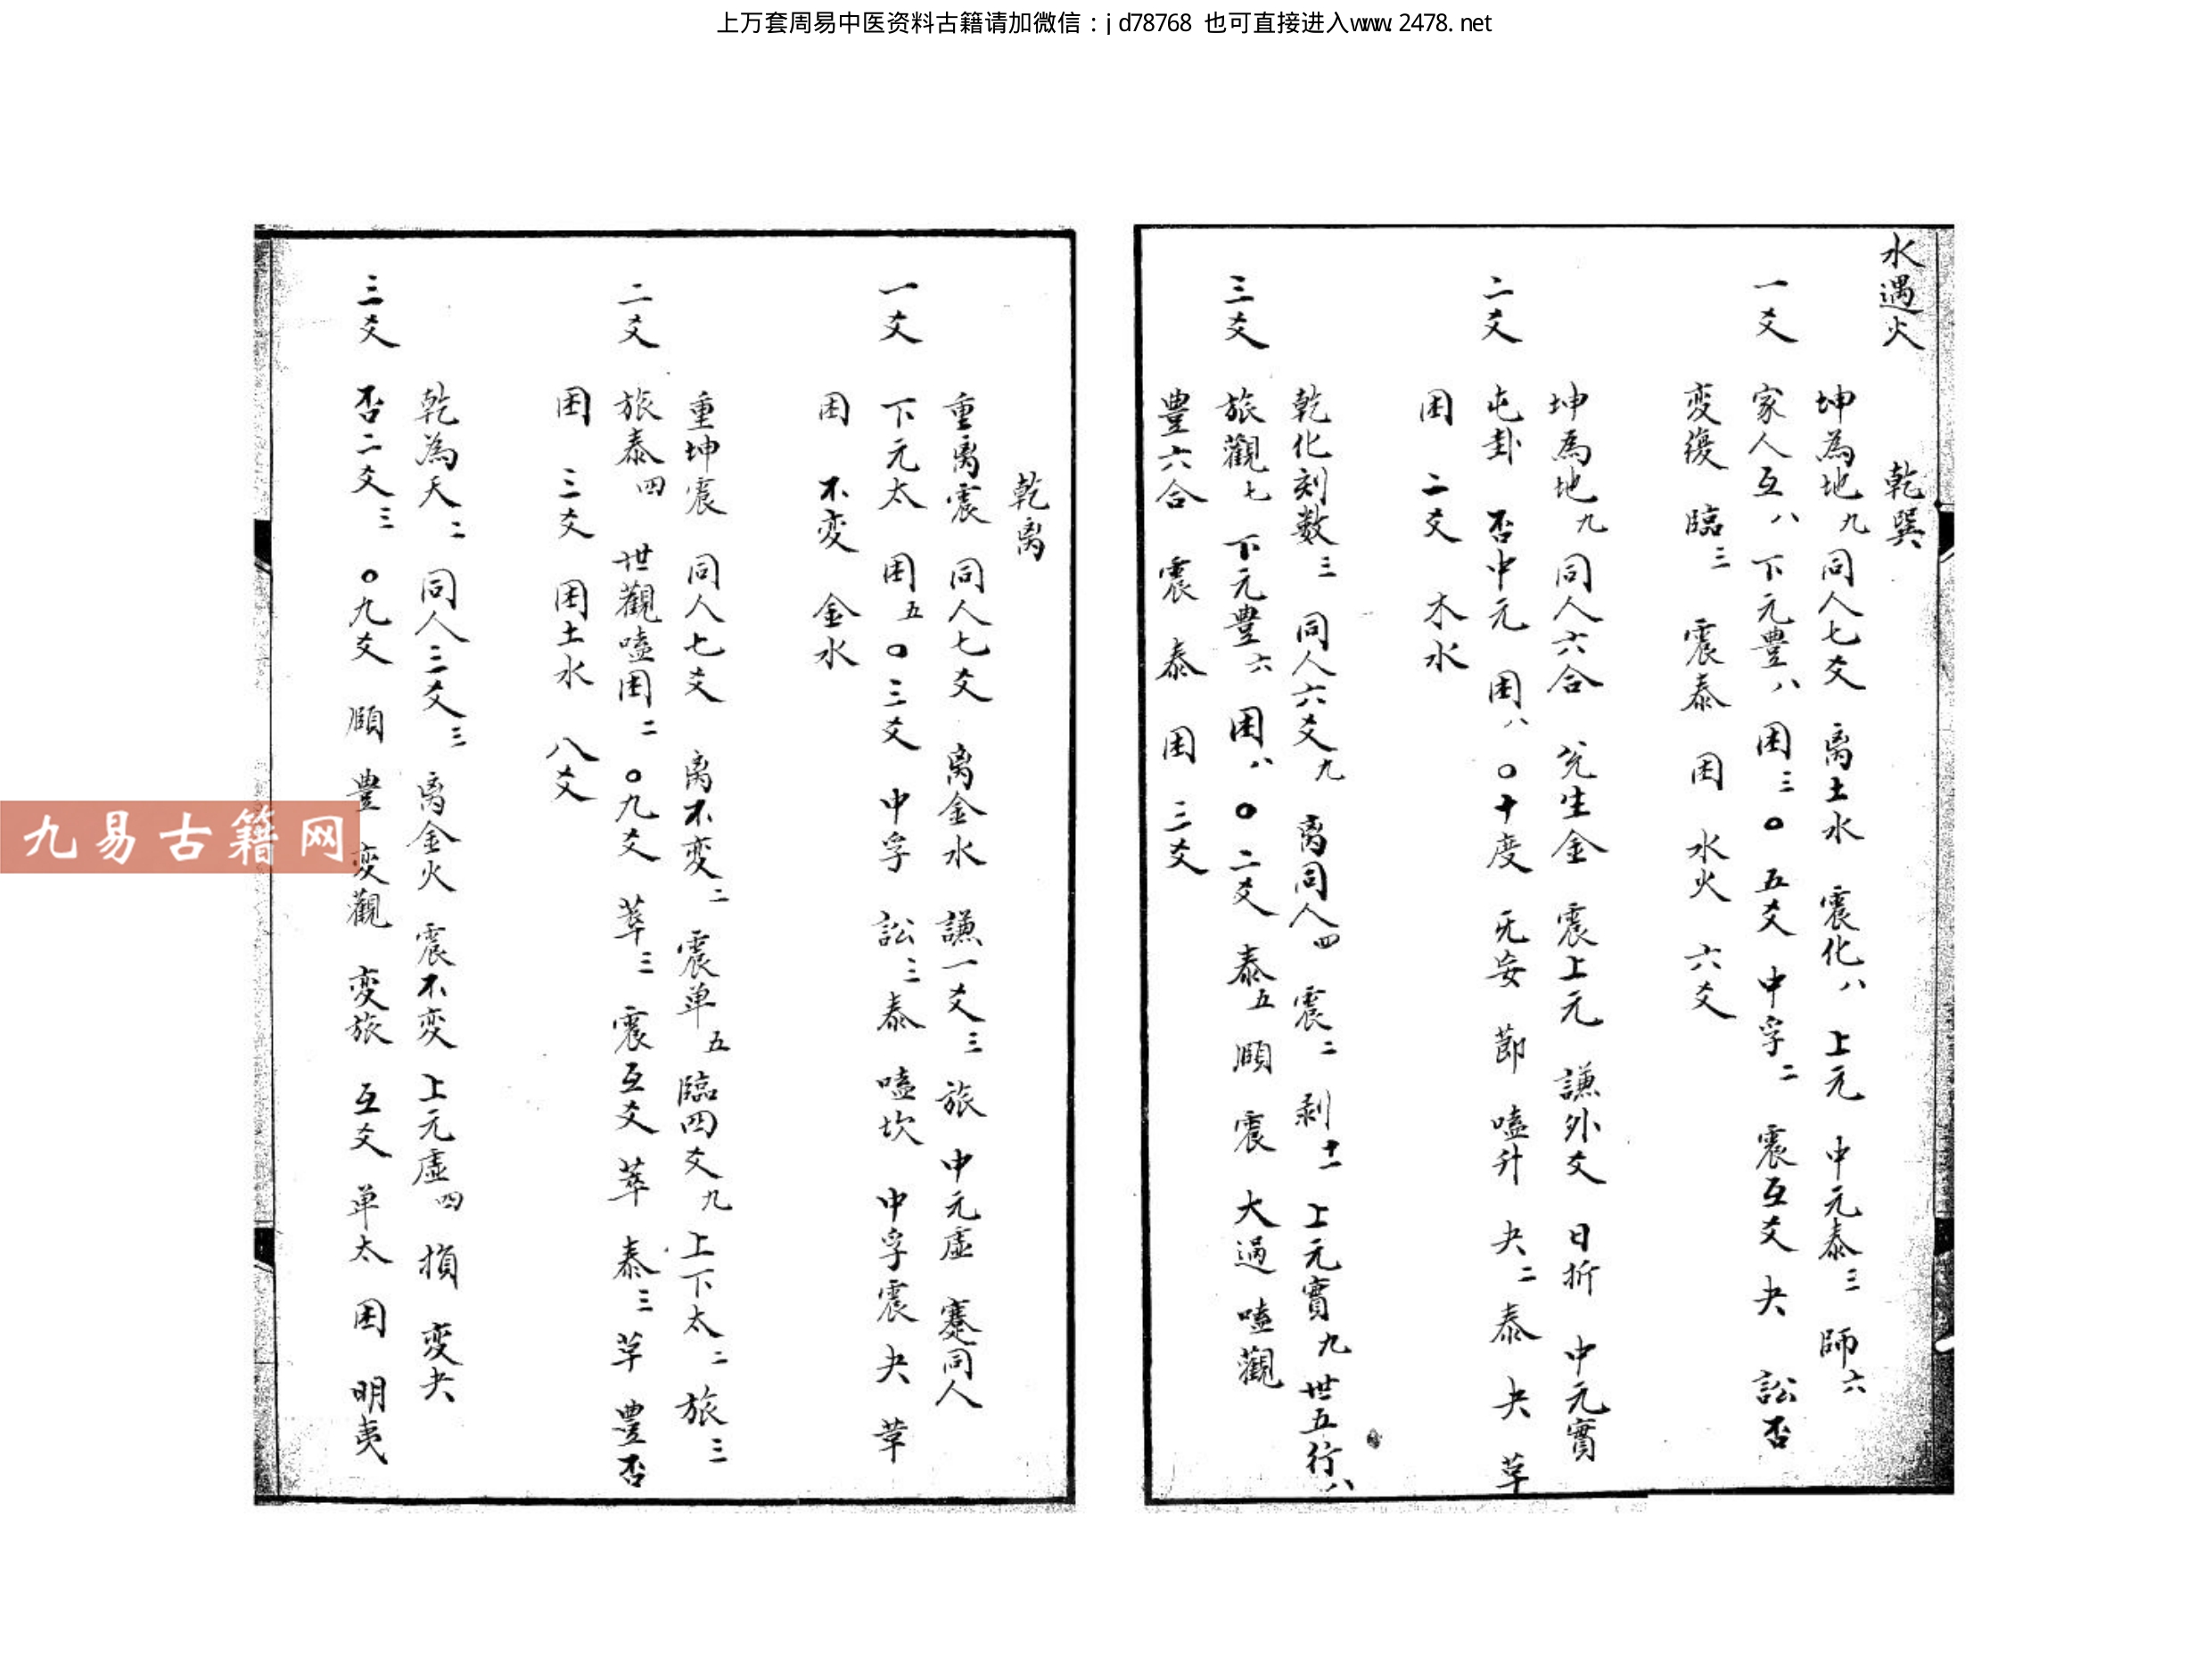 上万套周易中医资料古籍请加微信：jd78768 也可直接进入www.2478.net
水遇火 乾巽
坤為地九 同人七爻 离土水 震化八 上元 中元泰三 師六
一爻 家人互八 下元豐八 困三 〇 五爻 中孚二 震互爻 夬 訟否
变復 臨三 震泰 困 水火 六爻
坤為地九 同人六合 兑生金 震上元 謙外爻 日折 中元實
二爻 屯卦 否中元 困八 〇十度 无妄 節 嗑升 夬二 泰 夬 革
困 二爻 木水
乾化刻数三 同人六爻九 离同人四 震二 剥十一 上元實九 世五行八
三爻 旅觀七 下元豐六 困八 〇 二爻 泰五 頤 震 大過 嗑觀
豐六合 震 泰 困 三爻
乾离
重离震 同人七爻 离金水 謙一爻三 旅 中元虛 蹇同人
一爻 下元太 困五 〇三爻 中孚 訟三 泰 嗑坎 中孚震 夬 革
困 不变 金水
重坤震 同人七爻 离不变二 震单五 臨四爻九 上下太二 旅三
二爻 旅泰四 世觀嗑困二 〇九爻 萃三 震互爻 萃 泰三 革 豐否
困 三爻 困土水 八爻
乾為天二 同人三爻三 离金火 震不变 上元虛四 損 变夬
三爻 否二爻三 〇九爻 頤 豐 变觀 变旅 互爻 单太 困 明夷
九易古籍网